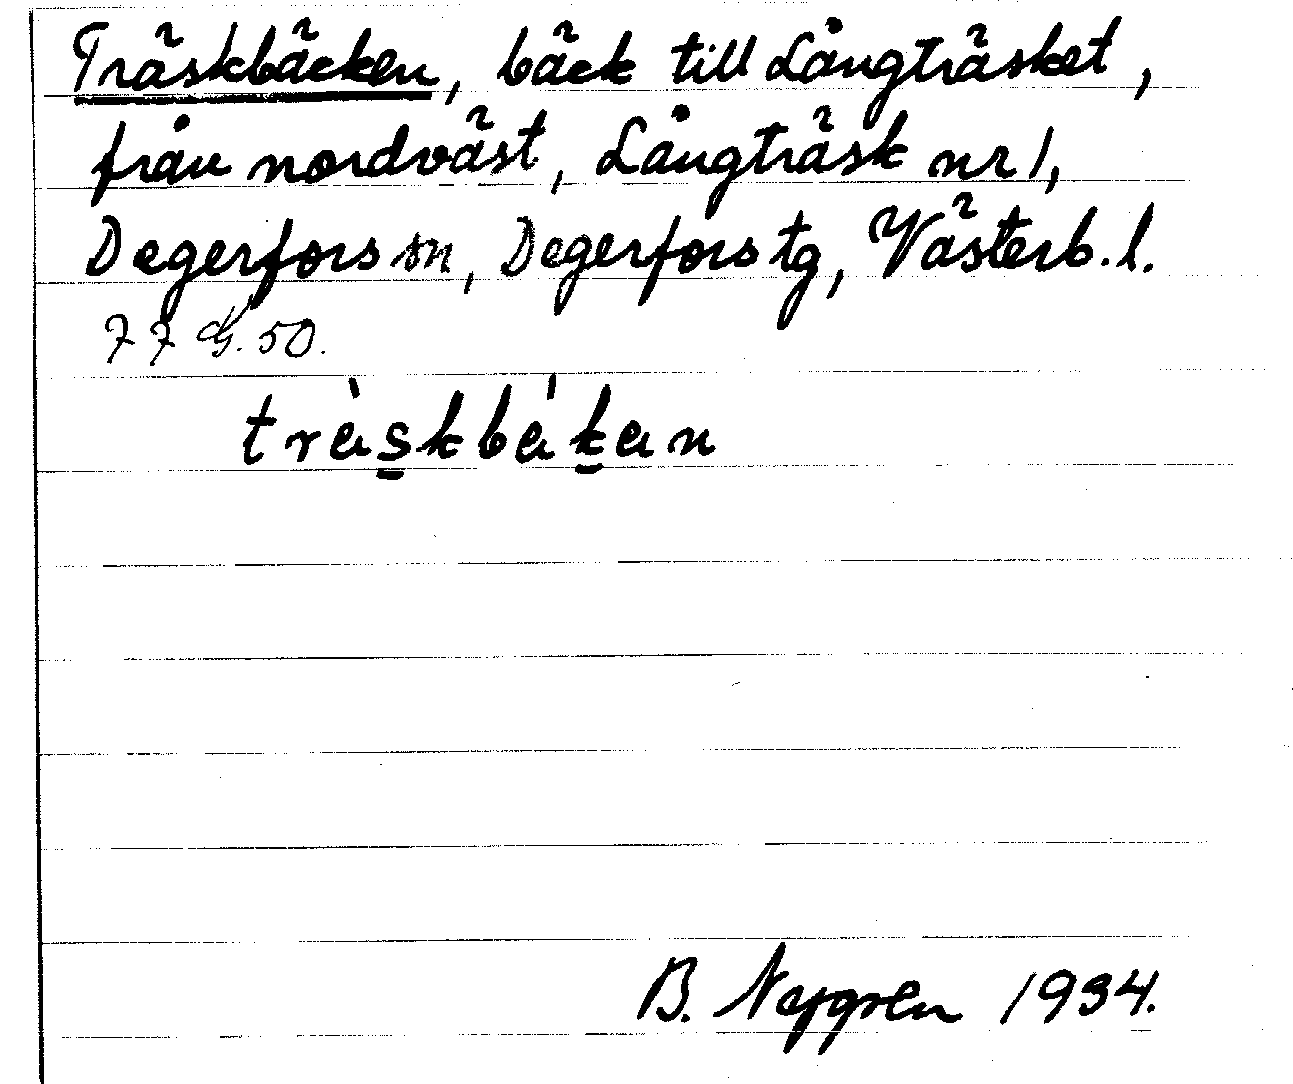 Träskbäcken, bäck till Långträsket,
från nordväst, Långträsk nr 1,
Degerfors sn, Degerfors tg, Västerb. l.
77 G. 50.
träskbäkan
B. 1934.